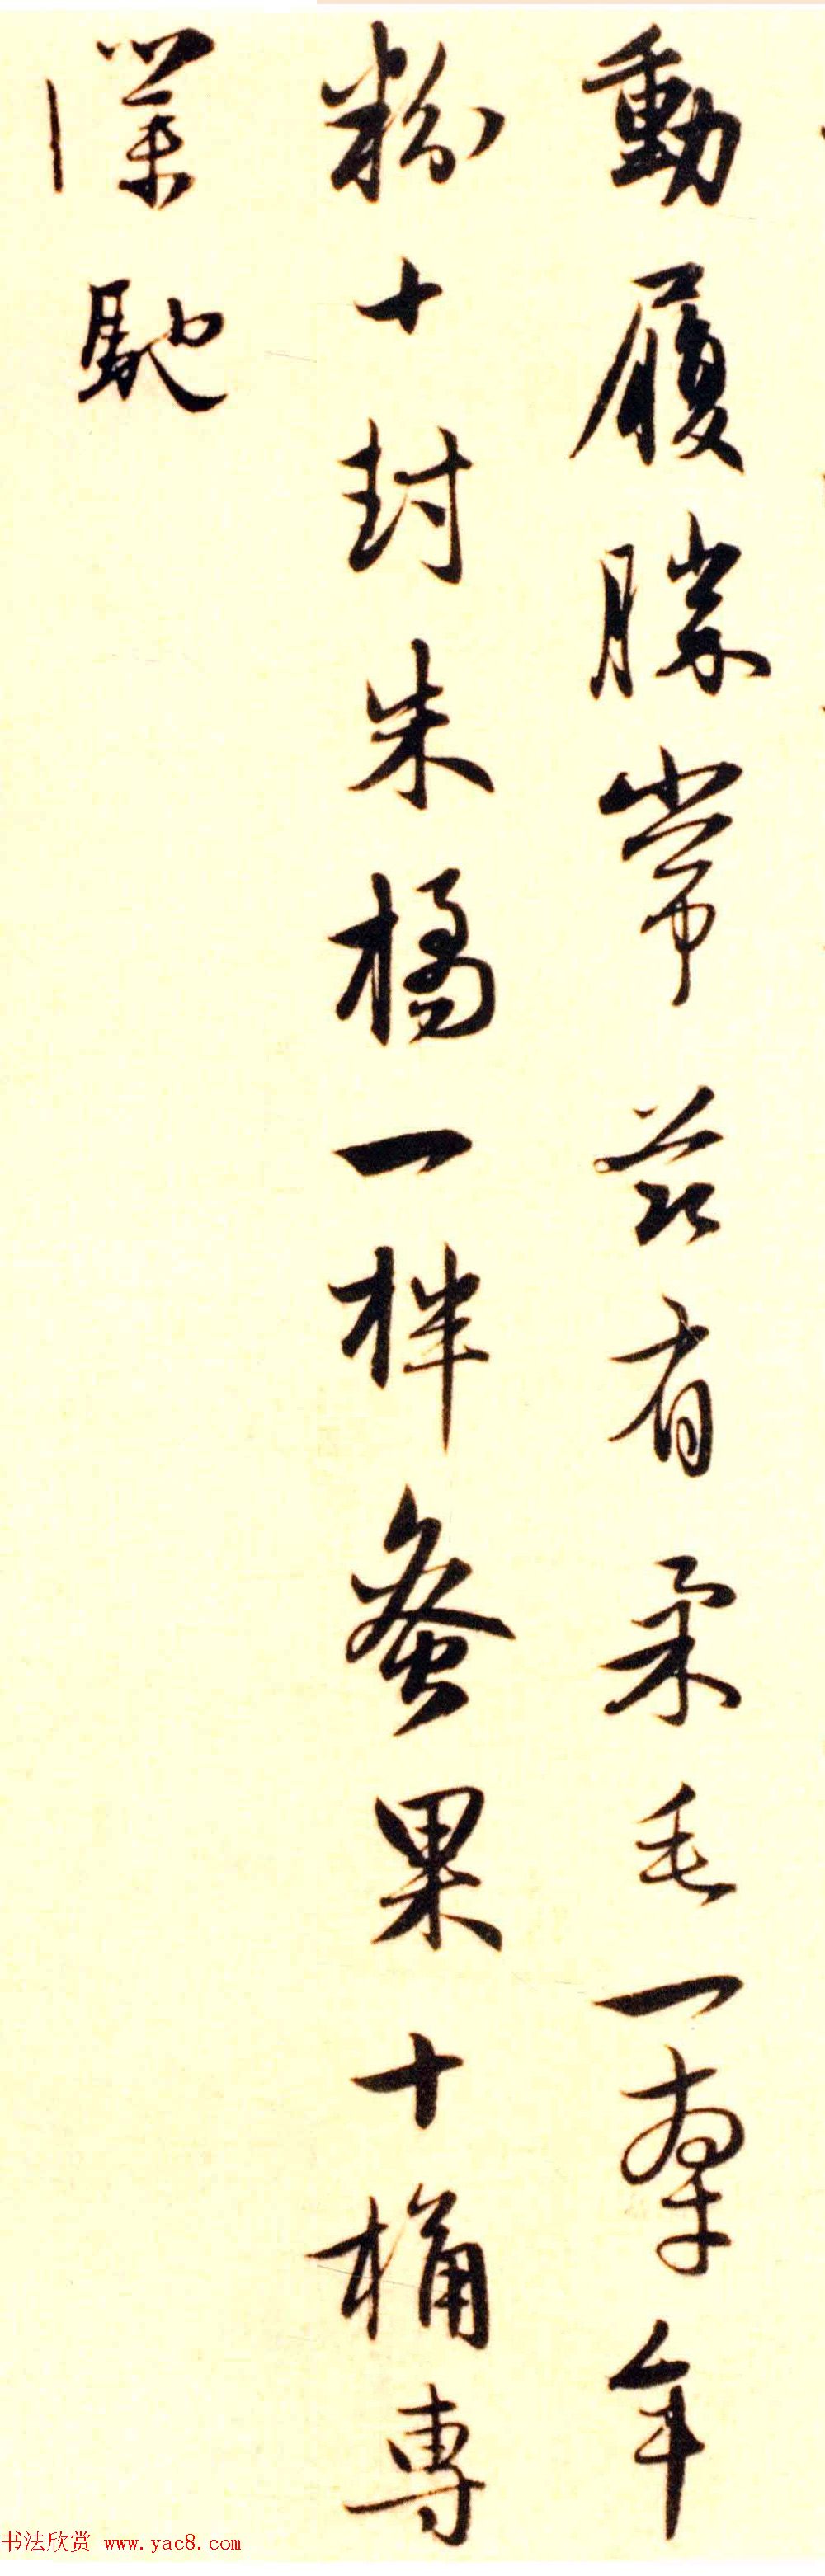 動履勝常茲有柔毛一牽年
粉十封朱橘一柈蚤果十桶專
僕馳
书法欣赏 www.yac8.com